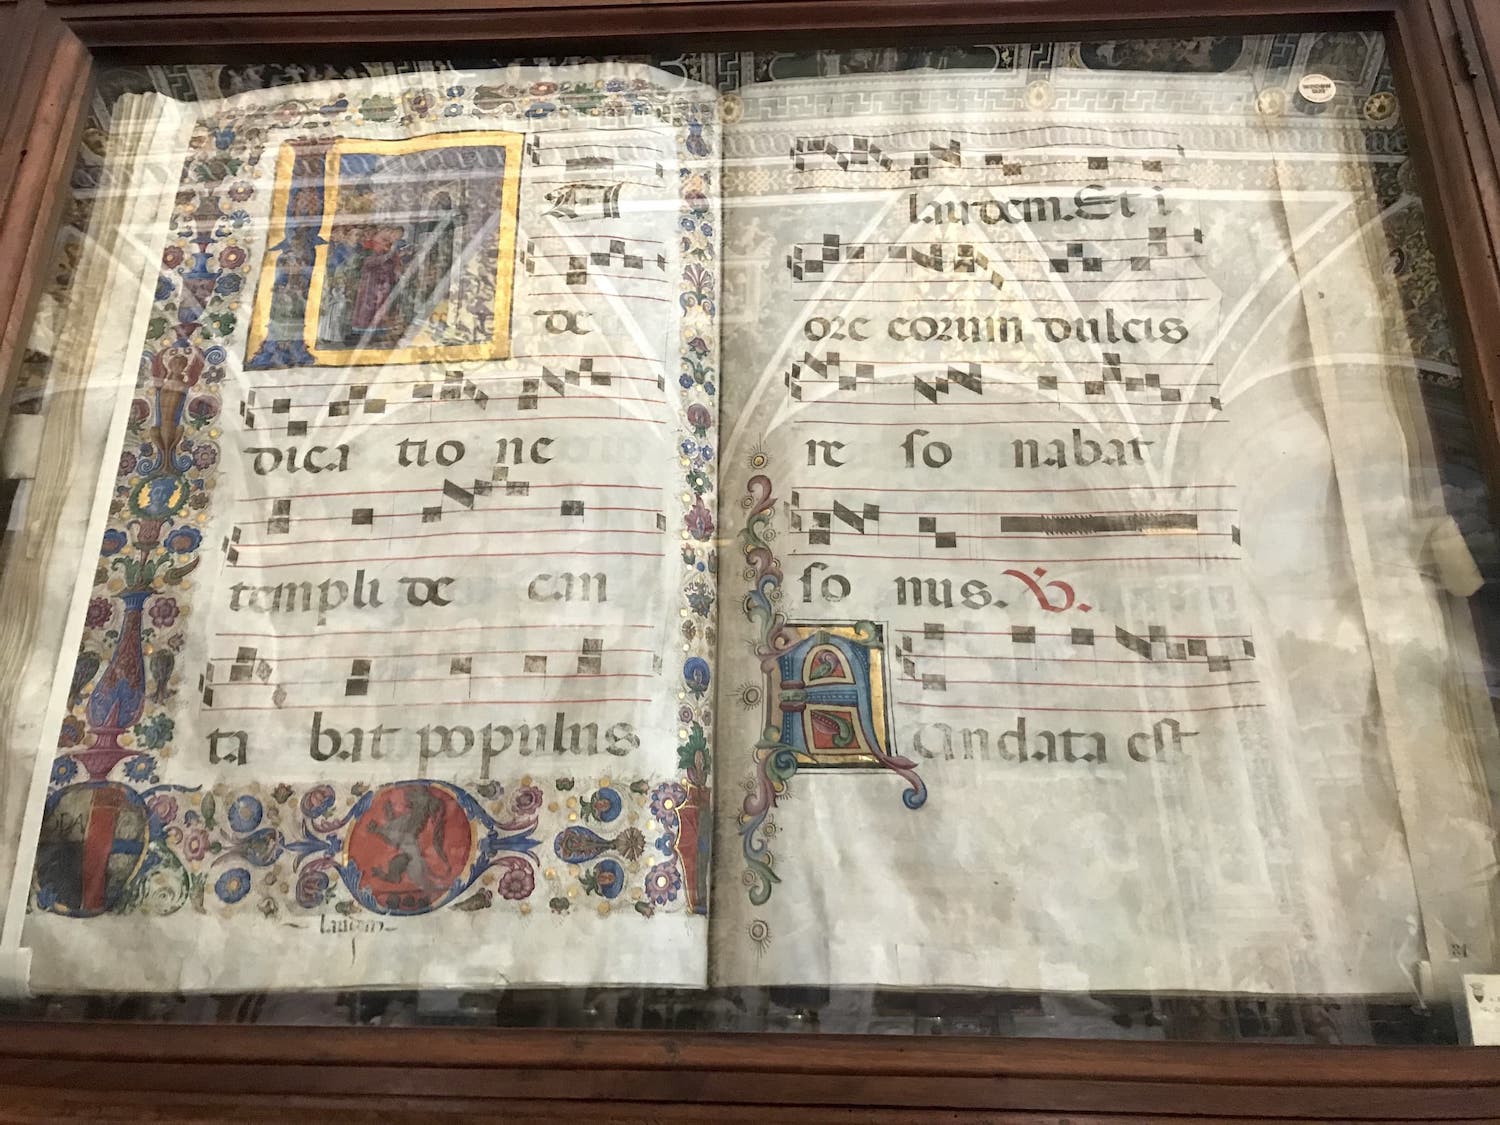 I
N
de
dica tio ne
templi de can
ta bat populus
laudem
laudem. Et i
ore eorum dulcis
re so nabat
so nus. V.
Fundata est